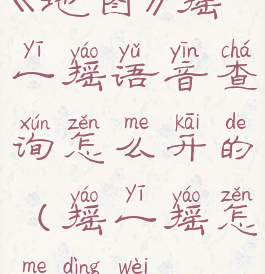 《地图》摇
yī yáo yǔ yīn chá
一摇语音查
xún zěn me kāi de
询怎么开的
yáo yī yáo zěn
（摇一摇怎
me dìng wèi